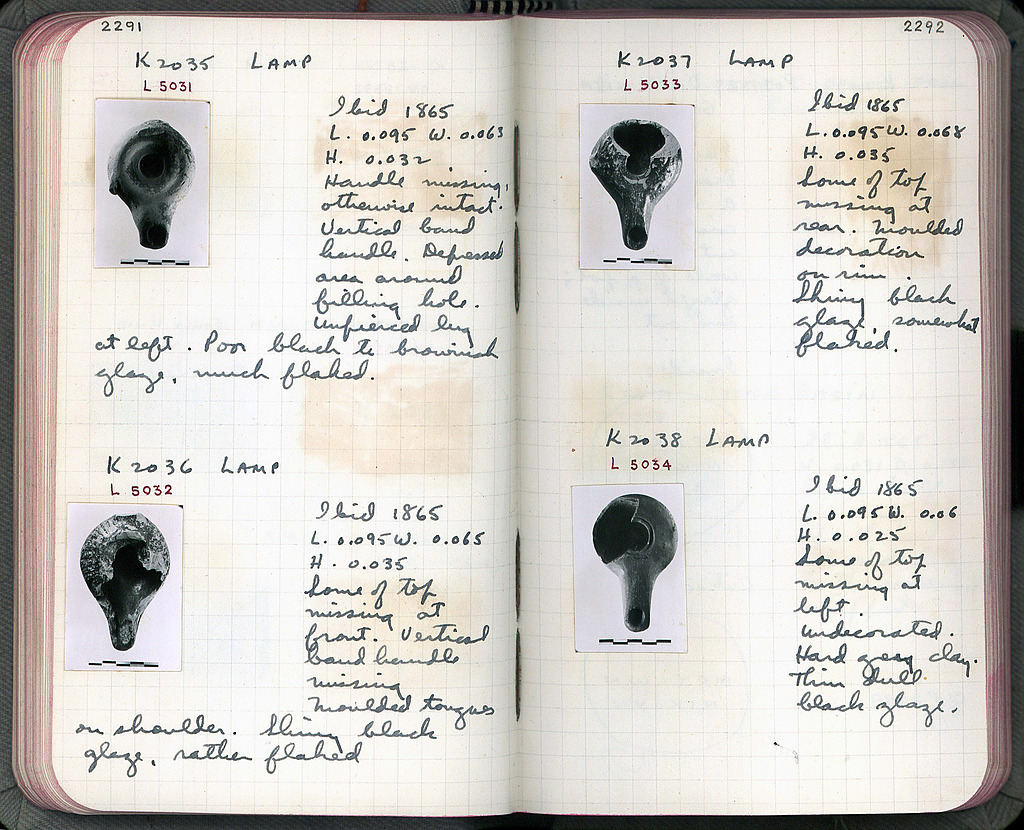 2291
K2035 LAMP
L 5031
Ibid 1865
L. 0.095 W. 0.063
H. 0.032
Handle missing,
otherwise intact.
Vertical band
handle. Depressed
area around
filling hole.
Unpierced lug
at left. Poor black to brownish
glaze, much flaked.
K2036 LAMP
L 5032
Ibid 1865
L. 0.095 W. 0.065
H. 0.035
Some of top
missing at
front. Vertical
band handle
missing
Moulded tongues
on shoulder. Shiny black
glaze, rather flaked
2292
K2037 LAMP
L 5033
Ibid 1865
L. 0.095 W. 0.068
H. 0.035
Some of top
missing at
rear. Moulded
decoration
on rim.
Shiny black
glaze, somewhat
flaked.
K2038 LAMP
L 5034
Ibid 1865
L. 0.095 W. 0.06
H. 0.025
Some of top
missing at
left.
Undecorated.
Hard grey clay.
Thin dull
black glaze.